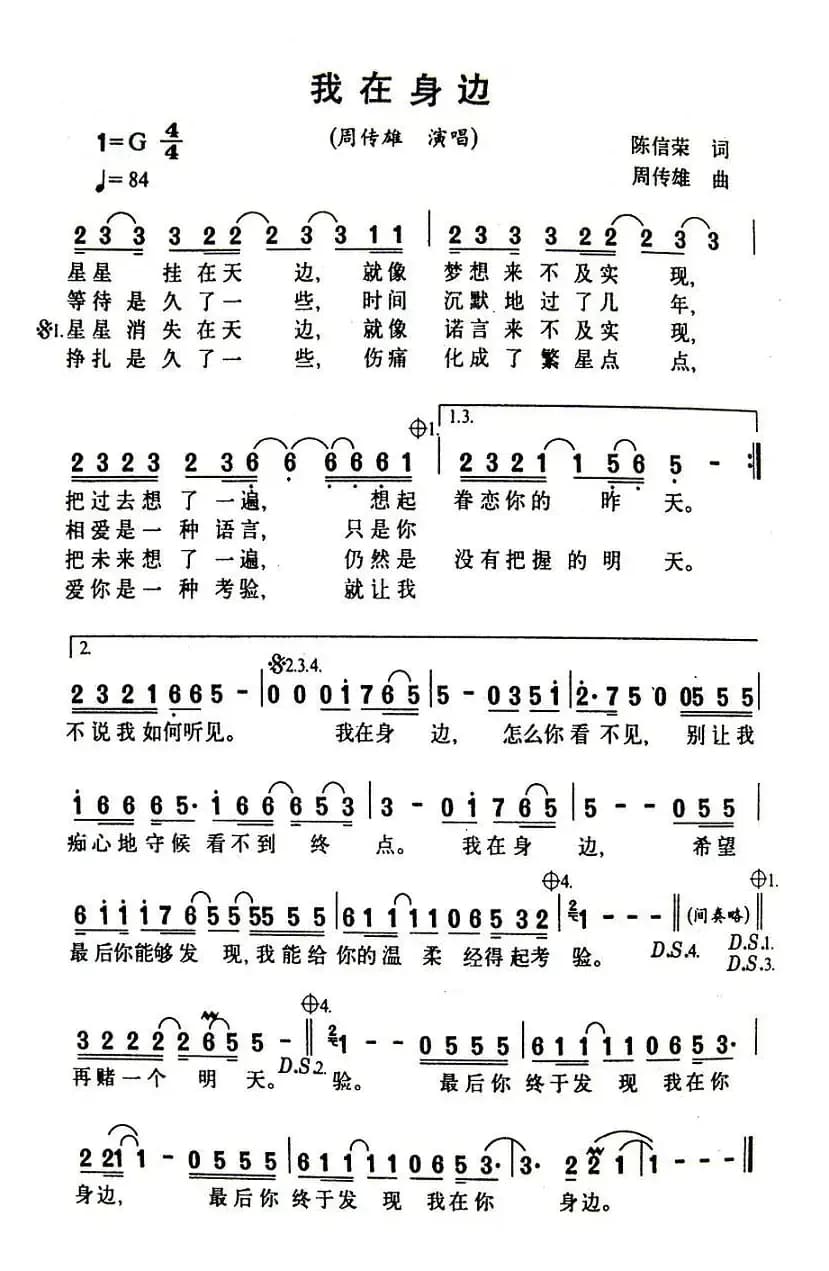 我在身边
1=G 4/4
(周传雄 演唱)
陈信荣 词
♩=84
周传雄 曲
2 3 3 3 2 2 2 2 3 3 1 1 | 2 3 3 3 2 2 2 3 3
星星 挂在天 边, 就像 梦想来不及实 现,
等待是久了一 些, 时间 沉默地过了几 年,
𝄋1.星星消失在天 边, 就像 诺言来不及实 现,
挣扎是久了一 些, 伤痛 化成了繁星点 点,
𝄌1. 1.3.
2 3 2 3 2 3 6 6 6 6 6 1 | 2 3 2 1 1 5 6 5 - :‖
把过去想了一遍, 想起 眷恋你的 昨 天。
相爱是一种语言, 只是你
把未来想了一遍, 仍然是 没有把握的明 天。
爱你是一种考验, 就让我
2. 𝄋2.3.4.
2 3 2 1 6 6 5 - | 0 0 0 1 7 6 5 | 5 - 0 3 5 1 | 2· 7 5 0 0 5 5 5 |
不说我如何听见。 我在身 边, 怎么你看不见, 别让我
1 6 6 6 5· 1 6 6 6 5 3 | 3 - 0 1 7 6 5 | 5 - - 0 5 5 |
痴心地守候 看不到 终 点。 我在身 边, 希望
𝄌4. 𝄌1.
6 1 1 1 7 6 5 5 5 5 5 5 | 6 1 1 1 1 0 6 5 3 2 | 2 1 - - ‖ (间奏略) ‖
最后你能够发 现,我能给你的温 柔 经得起考 验。 D.S.4. D.S.1.
D.S.3.
𝄌4.
3 2 2 2 2 2 6 5 5 - ‖ 2 1 - - 0 5 5 5 | 6 1 1 1 1 1 0 6 5 3· |
再赌一个 明 天。D.S.2. 验。 最后你 终于发 现 我在你
2 2 1 1 - 0 5 5 5 | 6 1 1 1 1 1 0 6 5 3· | 3· 2 2 1 | 1 - - - ‖
身边, 最后你 终于发 现 我在你 身边。